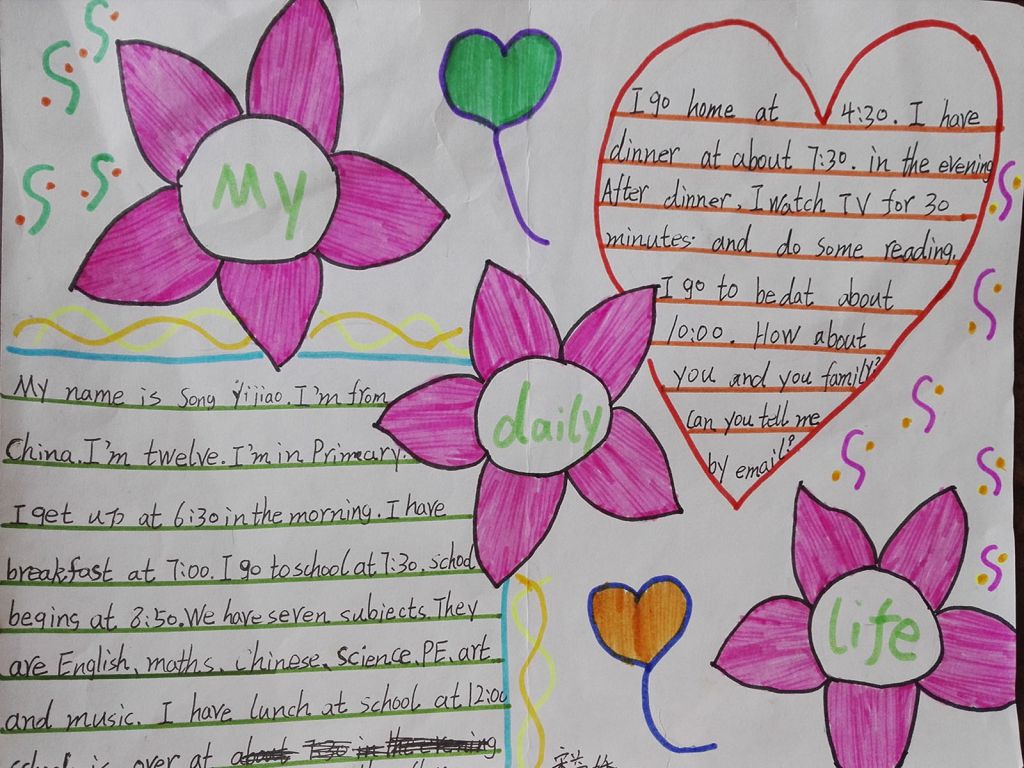 My
daily
life
My name is Song Yijiao. I'm from
China. I'm twelve. I'm in Primary.
I get up at 6:30 in the morning. I have
breakfast at 7:00. I go to school at 7:30. school
begins at 8:50. We have seven subjects. They
are English, maths, chinese, science, PE, art
and music. I have lunch at school at 12:00
school is over at about 7:30 in the evening
I go home at 4:30. I have
dinner at about 7:30. in the evening
After dinner, I watch TV for 30
minutes. and do some reading.
I go to bedat about
10:00. How about
you and you family?
Can you tell me
by email?